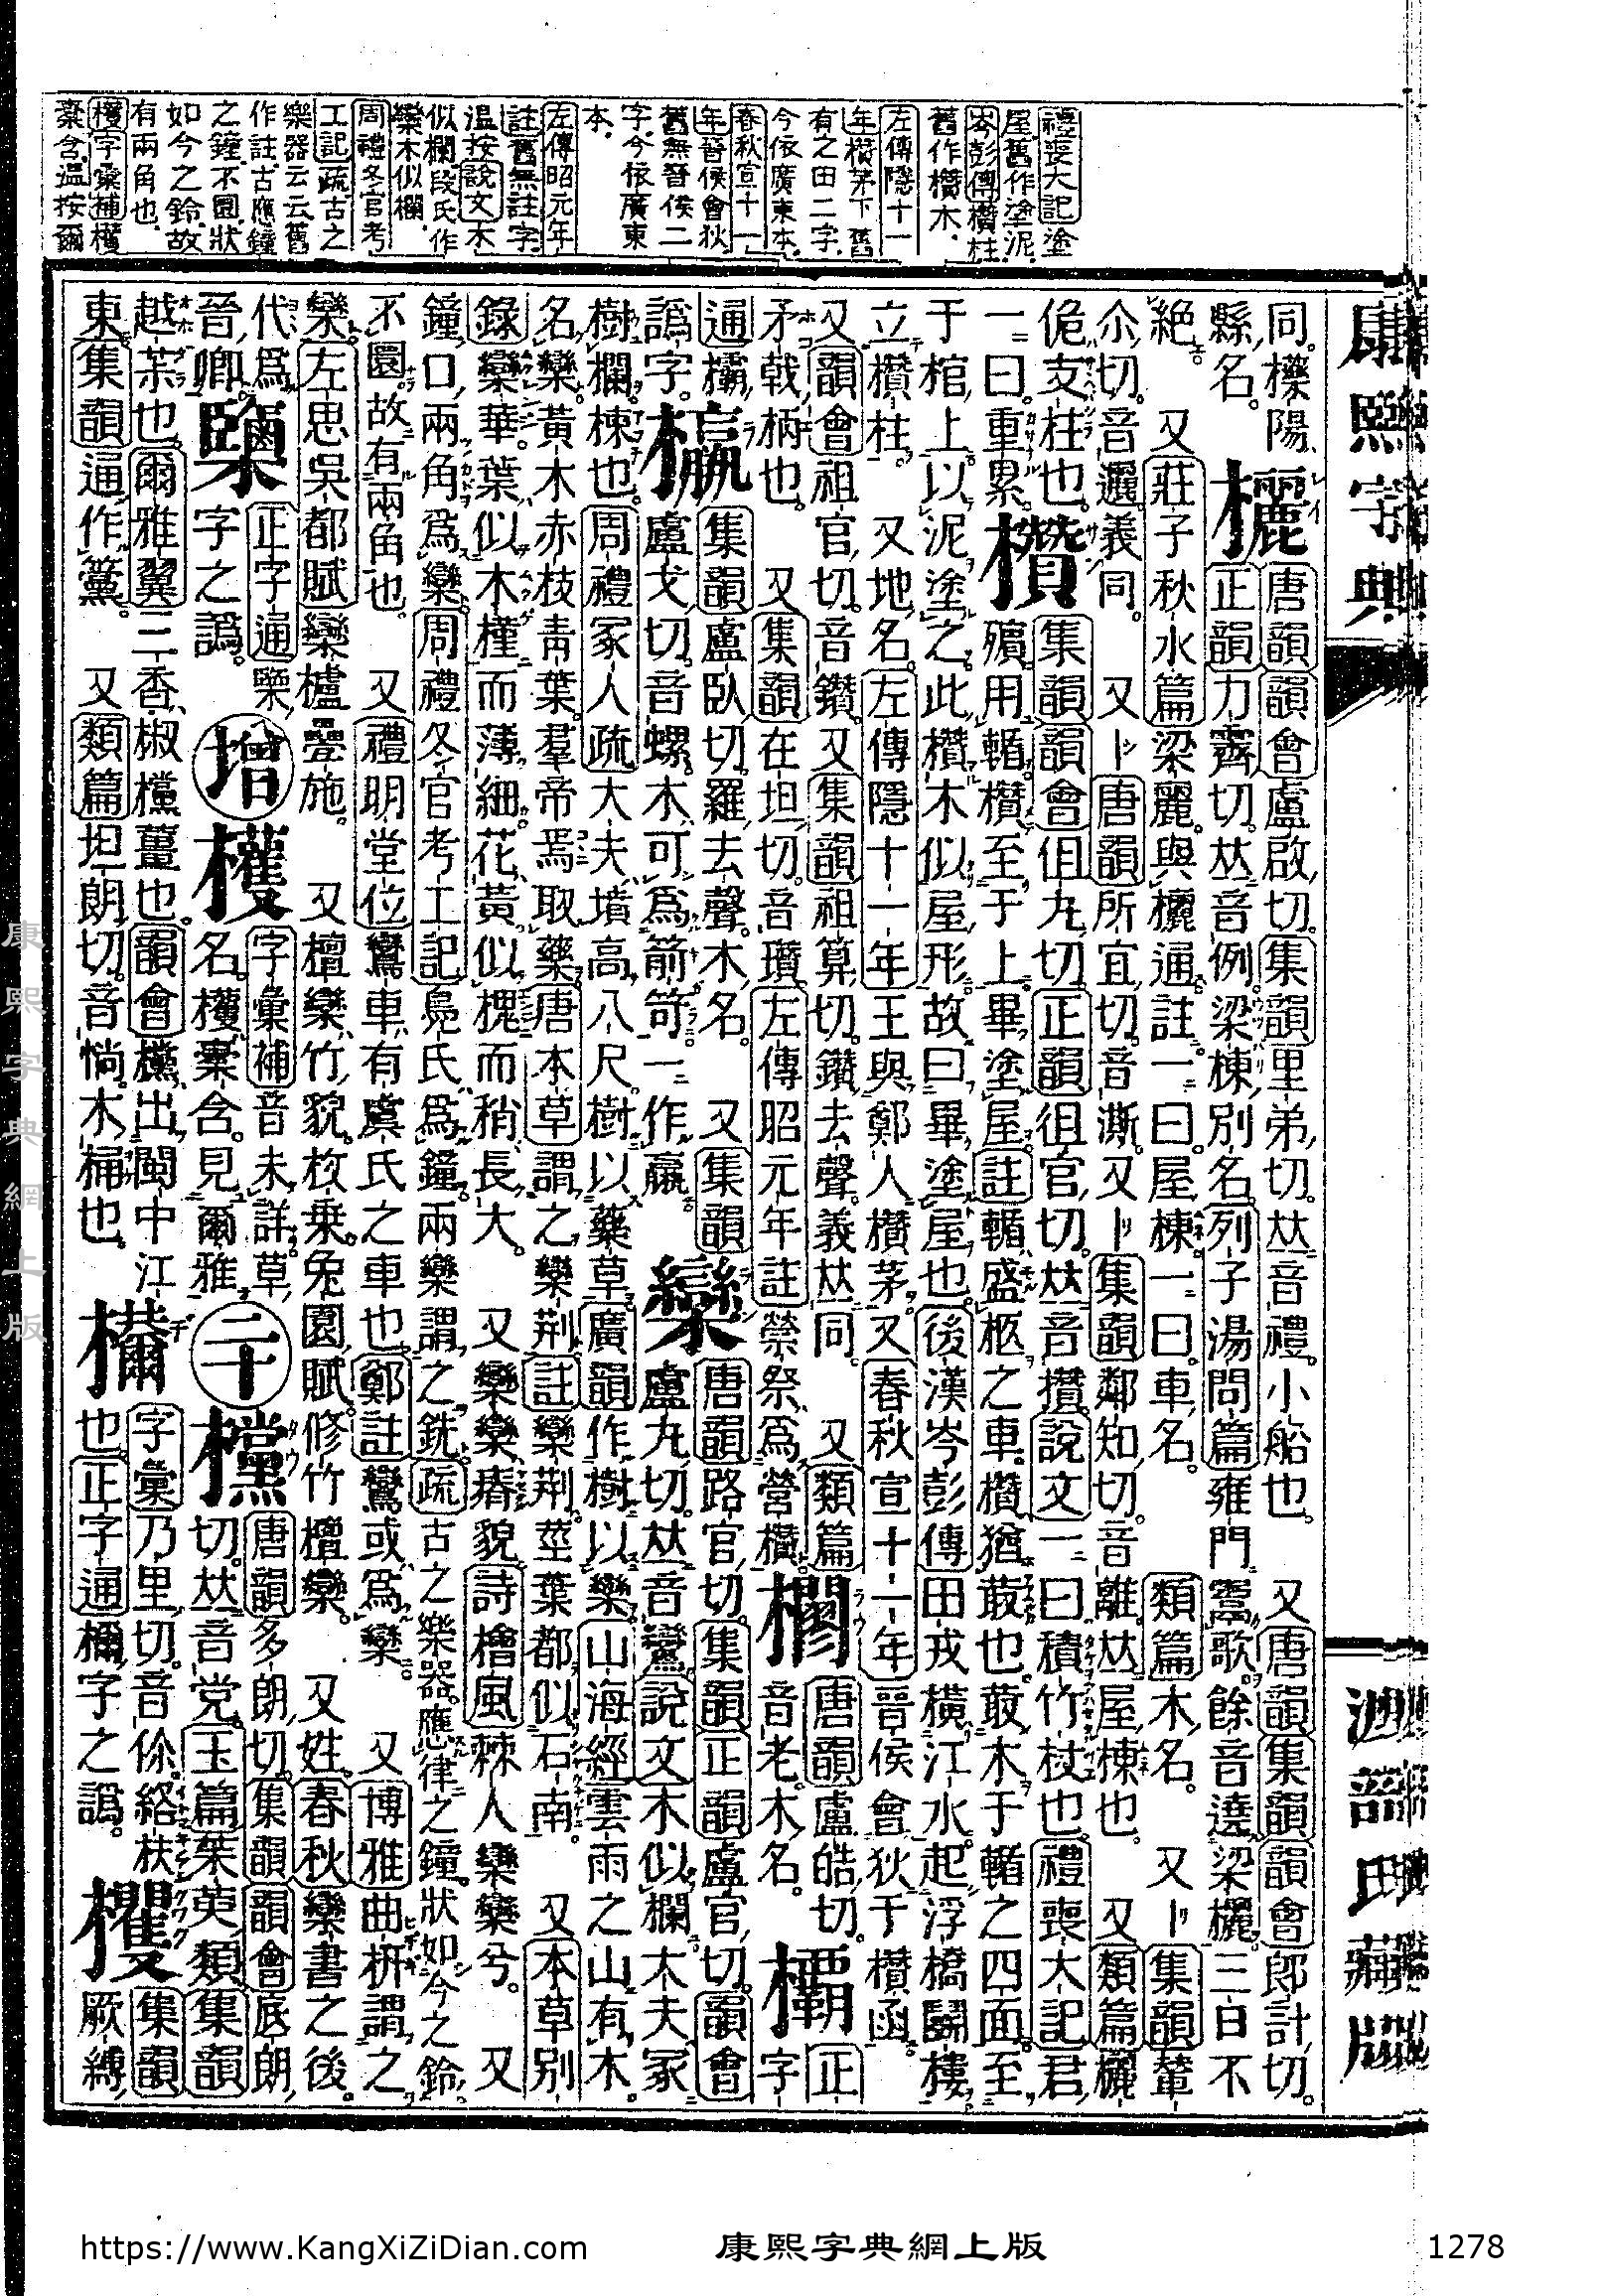 禮喪大記塗
屋舊作塗泥
岑彭傳欑柱
舊作欑木
左傳隱十一
年欑茅下舊
有之田二字
今依廣東本
春秋宣十一
年晉侯會狄
舊無晉侯二
字今依廣東
本
左傳昭元年
註舊無註字
溫按說文木
似欄段氏作
欒木似欄
周禮冬官考
工記疏古之
樂器云云舊
作註古應鐘
之鐘不圜狀
如今之鈴故
有兩角也
字彙補
橐含溫按爾
康熙字典
同櫟陽
縣名
欐
唐韻韻會盧啟切集韻里弟切𠀤音禮小船也 又唐韻集韻韻會郎計切
正韻力霽切𠀤音例梁棟別名列子湯問篇雍門鬻歌餘音遶梁欐三日不
絕 又莊子秋水篇梁麗與欐通註一曰屋棟一曰車名 類篇木名 又集韻輦
尒切音邐義同 又唐韻所宜切音澌又集韻鄰知切音離𠀤屋棟也 又類篇欐
佹支柱也
一曰重累
欑
集韻韻會徂丸切正韻徂官切𠀤音攢說文一曰積竹杖也禮喪大記君
殯用輴欑至于上畢塗屋註輴盛柩之車欑猶菆也菆木于輴之四面至
于棺上以泥塗之此欑木似屋形故曰畢塗屋也後漢岑彭傳田戎橫江水起浮橋鬭樓
立欑柱 又地名左傳隱十一年王與鄭人欑茅又春秋宣十一年晉侯會狄于欑函
又韻會祖官切音鑽又集韻祖算切鑽去聲義𠀤同 又類篇
矛戟柄也 又集韻在坦切音瓚左傳昭元年註禜祭爲營欑
唐韻盧皓切
音老木名
欛
正
字
通欛
譌字
集韻盧臥切羅去聲木名 又集韻
盧戈切音螺木可爲箭笴一作臝
欒
唐韻路官切集韻正韻盧官切韻會
盧丸切𠀤音鸞說文木似欄大夫冢
樹欄楝也周禮冢人疏大夫墳高八尺樹以藥草廣韻作樹以欒山海經雲雨之山有木
名欒黃木赤枝靑葉羣帝焉取藥唐本草謂之欒荆註欒荆莖葉都似石南 又本草別
錄欒華葉似木槿而薄細花黃似槐而稍長大 又欒欒瘠貌詩檜風棘人欒欒兮 又
鐘口兩角爲欒周禮冬官考工記鳧氏爲鐘兩欒謂之銑疏古之樂器應律之鐘狀如今之鈴
不圜故有兩角也 又禮明堂位鸞車有虞氏之車也鄭註鸞或爲欒 又博雅曲枅謂之
欒左思吳都賦欒櫨疊施 又檀欒竹貌枚乗兔園賦修竹檀欒 又姓春秋欒書之後
代爲
晉卿
正字通欒
字之譌
增
字彙補音未詳草
名 橐含見爾雅
二十
欓
唐韻多朗切集韻韻會底朗
切𠀤音党玉篇茱萸類集韻
越茮也爾雅翼三香椒欓薑也韻會欓出閩中江
東集韻通作簺 又類篇坦朗切音惝木桶也
字彙乃里切音伱絡柎
也正字通檷字之譌
欔
集韻
厥縛
沙部氏藏版
康熙字典網上版
https://www.KangXiZiDian.com
康熙字典網上版
1278